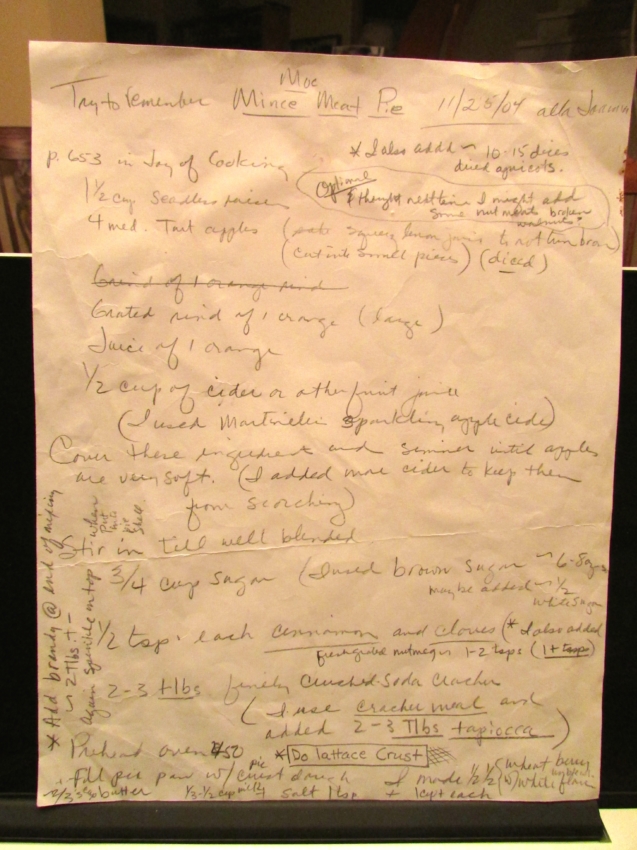 Try to remember Moc Mince Meat Pie 11/25/04
* I also add ~ 10-15 dices
dried apricots.
p. 653 in Joy of Cooking
Optional
I thought next time I might add
some nut meats broken
1 1/2 cup Seedless raisins
4 med. Tart apples (squeeze lemon juice to not turn brown)
(cut into small pieces) (diced)
Grind of 1 orange rind
Grated rind of 1 orange (large)
Juice of 1 orange
1/2 cup of cider or other fruit juice
(I used Martinelli Sparkling apple cider)
Cover these ingredients and simmer until apples
are very soft. (I added more cider to keep them
from scorching)
Stir in till well blended
3/4 cup sugar (I used brown sugar ~ 6-8
maybe added ~ 1/2
white sugar
1/2 tsp. each cinnamon and cloves (* I also added
nutmeg 1-2 tsps (1+ tsp)
2-3 tlbs finely crushed Soda Cracker
(I use cracker meal and
added 2-3 Tlbs tapiocca)
* Add brandy @ end of mixing
~ 2 Tlbs +-
Again sprinkle on top when
put
into
pie
shell.
Preheat oven 450
* Do lattace Crust
fill pie pan w/ pie crust dough
I made 1/2 1/2 wheat berry
(w) white flour
2/3 butter 1/3-1/2 cup milk + salt 1 tsp + 1 cup each